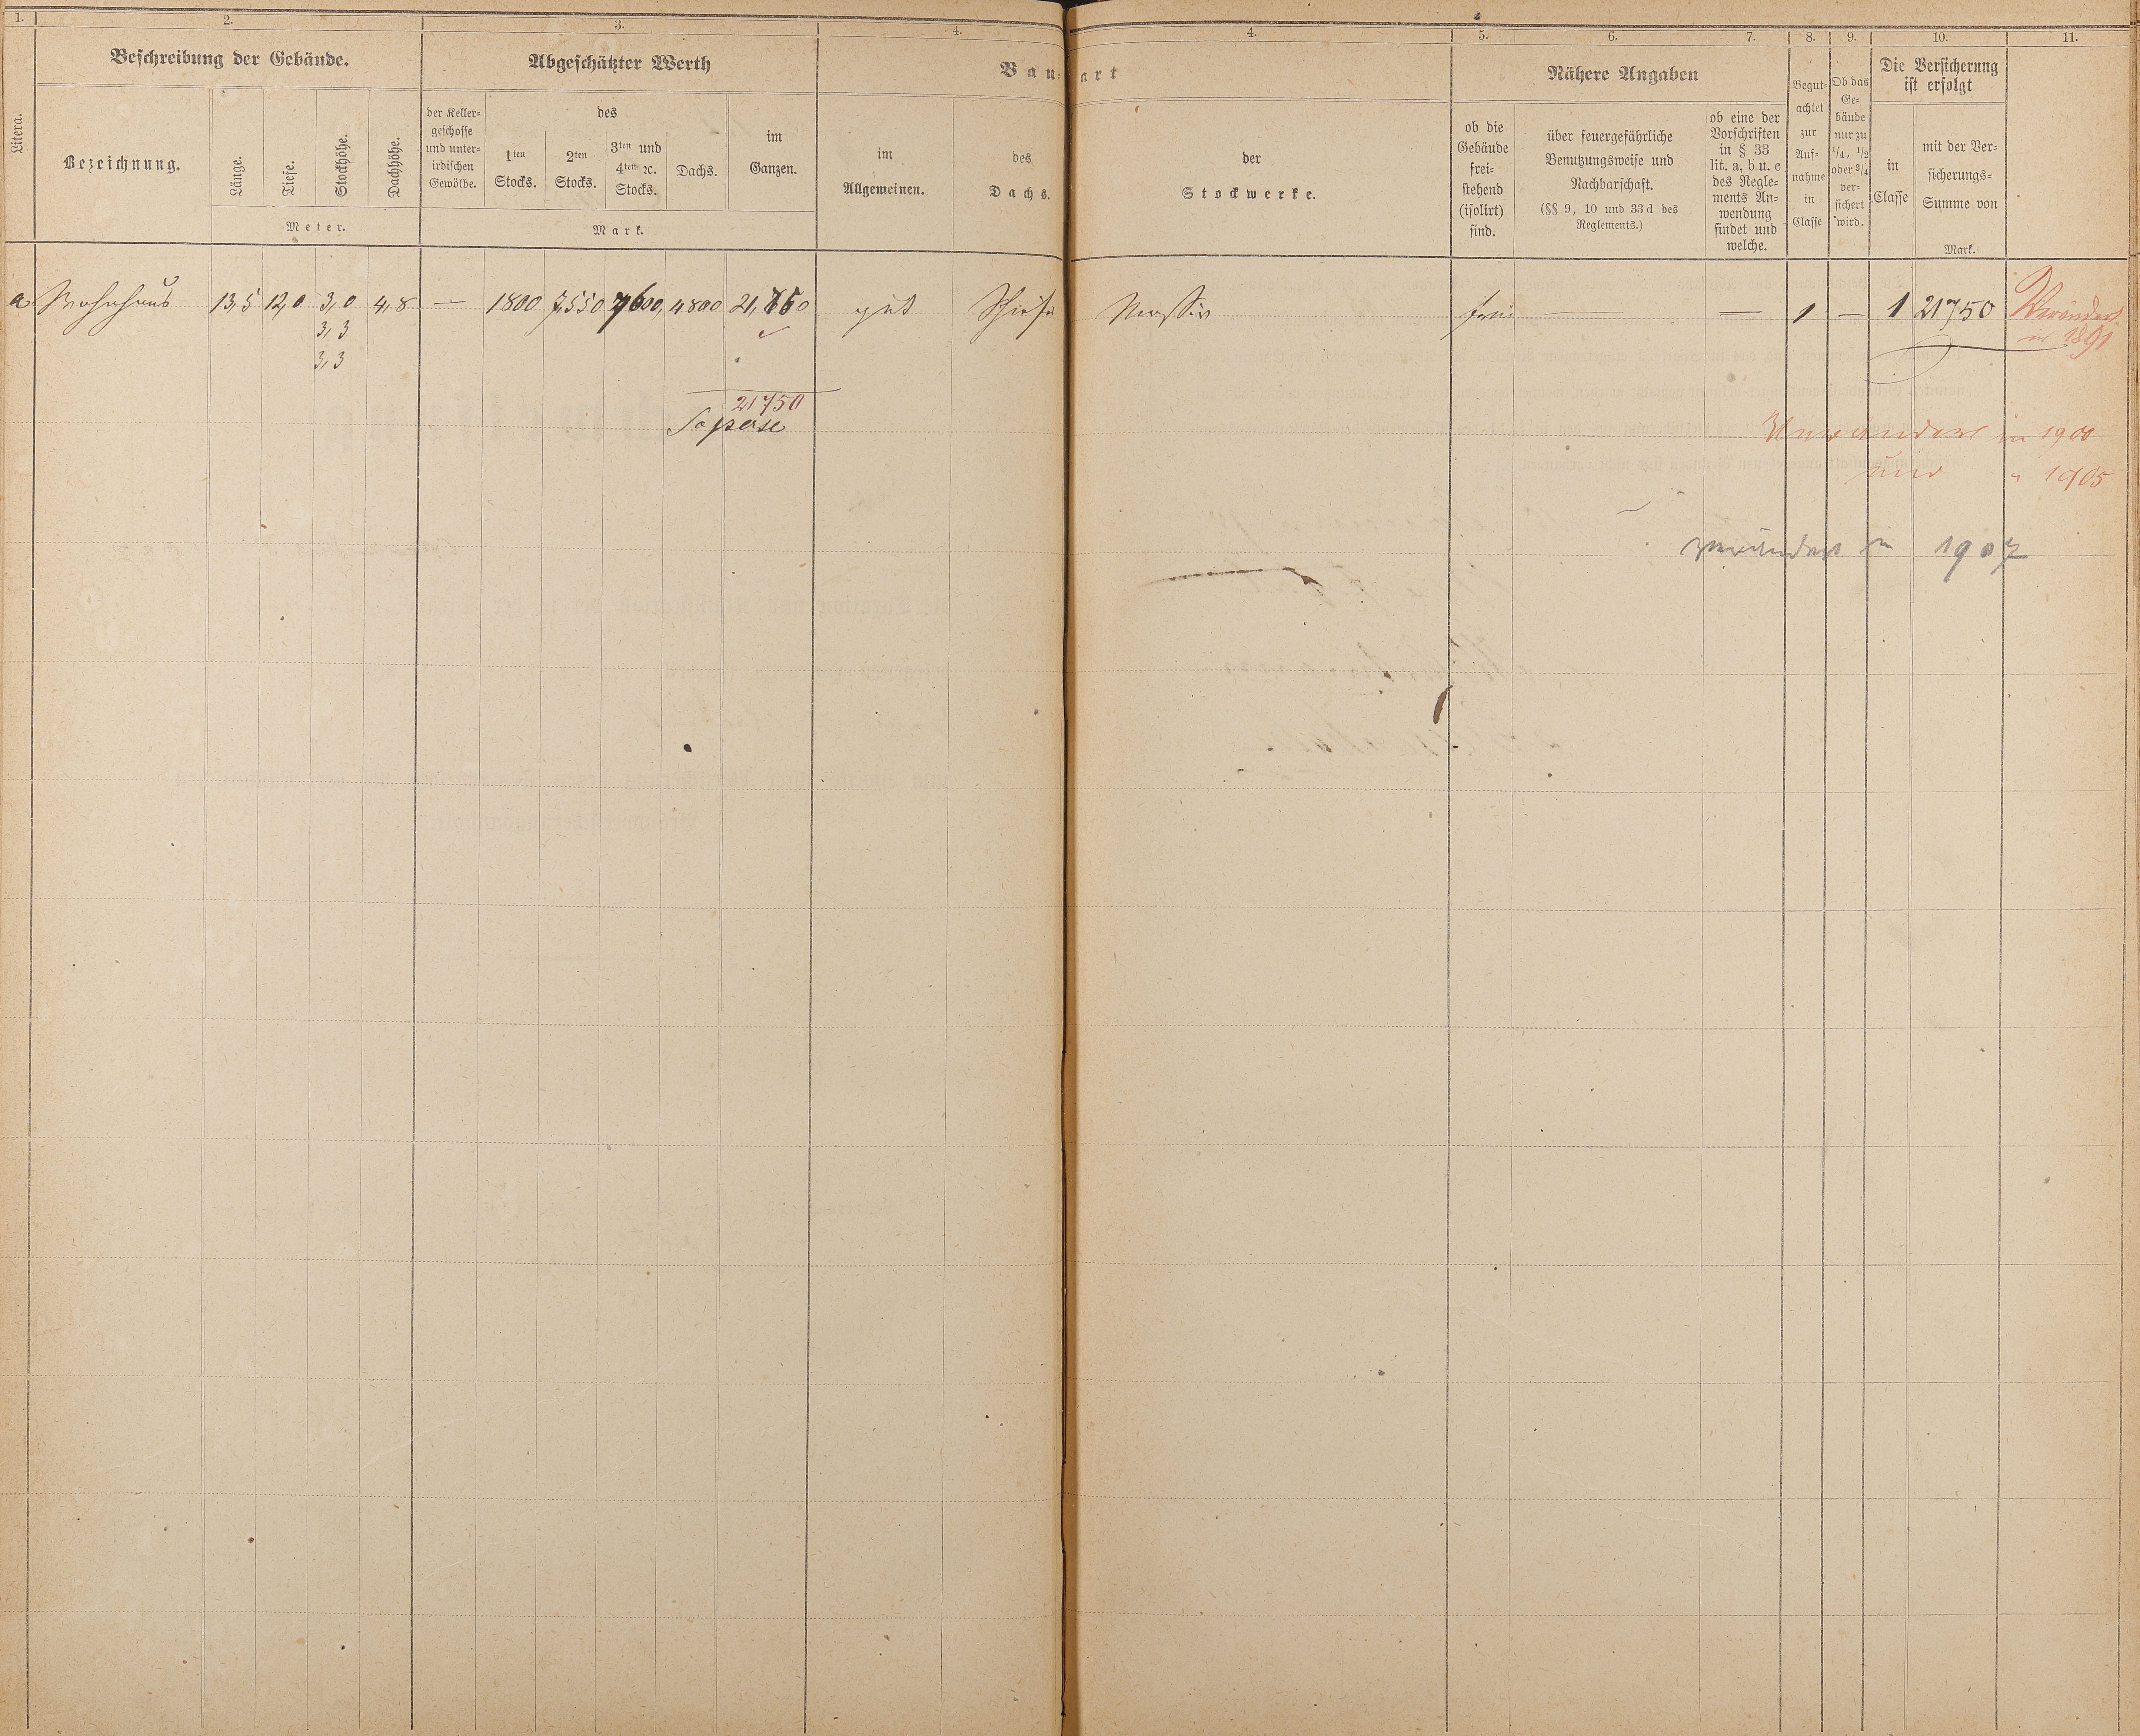 1. 2. 3. 4. 4. 5. 6. 7. 8. 9. 10. 11.
Litera.
Beschreibung der Gebäude.
Bezeichnung.
Länge.
Tiefe.
Stockhöhe.
Dachhöhe.
Meter.
Abgeschätzter Werth
der Keller-
geschosse
und unter-
irdischen
Gewölbe.
des
1ten
Stocks.
2ten
Stocks.
3ten und
4ten ꝛc.
Stocks.
Dachs.
im
Ganzen.
Mark.
Bau-
art
im
Allgemeinen.
des
Dachs.
der
Stockwerke.
Nähere Angaben
ob die
Gebäude
frei-
stehend
(isolirt)
sind.
über feuergefährliche
Benutzungsweise und
Nachbarschaft.
(§§ 9, 10 und 33 d des
Reglements.)
ob eine der
Vorschriften
in § 33
lit. a, b u. c
des Regle-
ments An-
wendung
findet und
welche.
Begut-
achtet
zur
Auf-
nahme
in
Classe
Ob das
Ge-
bäude
nur zu
1/4, 1/2
oder 3/4
ver-
sichert
wird.
Die Versicherung
ist erfolgt
in
Classe
mit der Ver-
sicherungs-
Summe von
Mark.
a Wohnhaus 13,5 12,0 3,0 4,8 — 1800 7,550 7600, 4800 21,750 gut Schiefer Massiv frei — — 1 — 1 21750 Verändert
3,3
in 1891
3,3
21750
Unverändert in 1900
und " 1905
verändert in 1907